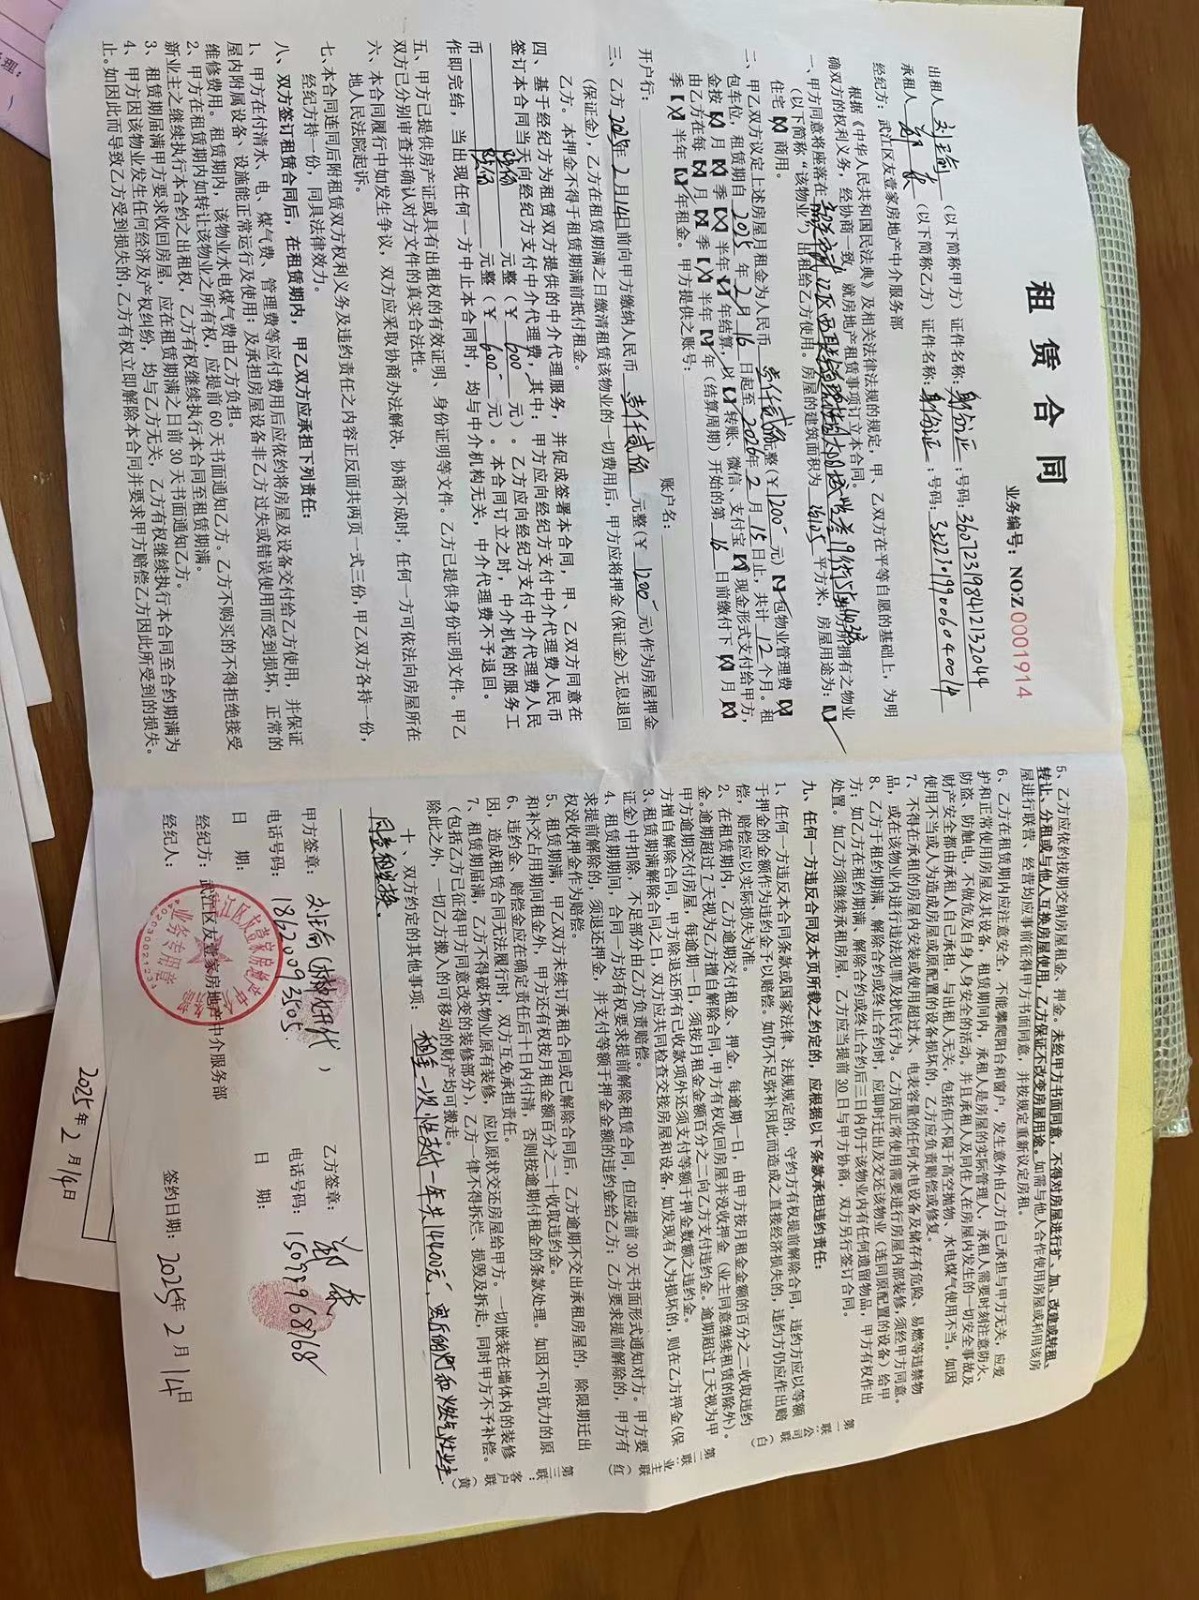 租赁合同
业务编号：NO:Z 0001914
出租人 （以下简称甲方）证件名称：身份证；号码：360723198412132044
承租人 （以下简称乙方）证件名称：身份证；号码：
经纪方：武江区友壹家房地产中介服务部
根据《中华人民共和国民法典》及相关法律法规的规定，甲、乙双方在平等自愿的基础上，为明
确双方的权利义务，经协商一致，就房地产租赁事项订立本合同。
一、甲方同意将座落在
（以下简称“该物业”）出租给乙方使用。房屋的建筑面积为 平方米，房屋用途为：
住宅 商用。
二、甲乙双方议定上述房屋月租金为人民币 壹仟贰佰 元整（￥1200 元） 包物业管理费
包车位，租赁期自 2025 年 2 月 16 日起至 2026 年 2 月 15 日止，共计 12 个月。租
金按 月 季 半年 年结算，以 转账、微信、支付宝 现金形式支付给甲方，
由乙方在每 月 季 半年 年（结算周期）开始的第 16 日前缴付下 月
季 半年 年租金。甲方提供之账号：
开户行： 账户名：
三、乙方2025年2月14日前向甲方缴纳人民币 壹仟贰佰 元整（￥ 1200 元）作为房屋押金
（保证金），乙方在租赁期满之日缴清租赁该物业的一切费用后，甲方应将押金（保证金）无息退回
乙方。本押金不得于租赁期满前抵付租金。
四、基于经纪方为租赁双方提供的中介代理服务，并促成签署本合同，甲、乙双方同意在
签订本合同当天向经纪方支付中介代理费，其中：甲方应向经纪方支付中介代理费人民币
陆佰 元整（￥ 600 元）。乙方应向经纪方支付中介代理费人民
币 陆佰 元整（￥ 600 元）。本合同订立之时，中介机构的服务工
作即完结，当出现任何一方中止本合同时，均与中介机构无关，中介代理费不予退回。
五、甲方已提供房产证或具有出租权的有效证明、身份证明等文件。乙方已提供身份证明文件。甲乙
双方已分别审查并确认对方文件的真实合法性。
六、本合同履行中如发生争议，双方应采取协商办法解决，协商不成时，任何一方可依法向房屋所在
地人民法院起诉。
七、本合同连同后附租赁双方权利义务及违约责任之内容正反面共两页一式三份，甲乙双方各持一份，
经纪方持一份，同具法律效力。
八、双方签订租赁合同后，在租赁期内，甲乙双方应承担下列责任：
1、甲方在付清水、电、煤气费、管理费等应付费用后应依约将房屋及设备交付给乙方使用，并保证
屋内附属设备、设施能正常运行及使用；及承担房屋设备非乙方过失或错误使用而受到损坏，正常的
维修费用。租赁期内，该物业水电煤气费由乙方负担。
2、甲方在租赁期内如转让该物业之所有权，应提前 60 天书面通知乙方。乙方不购买的不得拒绝接受
新业主之继续执行本合约之出租权，乙方有权继续执行本合同至租赁期满。
3、租赁期届满甲方要求收回房屋，应在租赁期满之日前 30 天书面通知乙方。
4、甲方因该物业发生任何经济及产权纠纷，均与乙方无关，乙方有权继续执行本合同至合约期满为
止。如因此而导致乙方受到损失的，乙方有权立即解除本合同并要求甲方赔偿乙方因此所受到的损失。
5、乙方应依约按期交纳房屋租金、押金。未经甲方书面同意，不得对房屋进行扩、加、改建或转租、
转让、分租或与他人互换房屋使用，乙方保证不改变房屋用途。如需与他人合作使用房屋或利用该房
屋进行联营、经营均应事前征得甲方书面同意，并按规定重新议定房租。
6、乙方在租赁期内应注意安全，不能攀爬阳台和窗户，发生意外由乙方自己承担与甲方无关，应爱
护和正常使用房屋及其设备，租赁期间内，承租人是房屋的实际管理人，承租人需要时刻注意防火、
防盗、防触电，不做危及自身人身安全的活动，并且承租人及同住人在房屋内发生的一切安全事故及
财产安全都由承租人自己承担，与出租人无关，包括但不限于高空抛物、水电煤气使用不当。如因
使用不当或人为造成房屋或原配置的设备损坏的，乙方应负责赔偿或修复。
7、不得在承租的房屋内安装或使用超过水、电表容量的任何水电设备及储存有危险、易燃等违禁物
品，或在该物业内进行违法犯罪及扰民行为。乙方因正常使用需要进行房屋内部装修，须经甲方同意。
8、乙方于租约期满，解除合约或终止合约时，应即时迁出及交还该物业（连同原配置的设备）给甲
方；如乙方在租约期满、解除合约或终止合约后三日内仍于该物业内有任何遗留物品，甲方有权作出
处置。如乙方须继续承租房屋，乙方应当提前 30 日与甲方协商，双方另行签订合同。
九、任何一方违反合同及本页所载之约定的，应根据以下条款承担违约责任：
1、任何一方违反本合同条款或国家法律、法规规定的，守约方有权提前解除合同，违约方应以等额
于押金的金额作为违约金予以赔偿。如仍不足弥补因此而造成之直接经济损失的，违约方仍应作出赔
偿，赔偿应以实际损失为准。
2、在租赁期内，乙方逾期交付租金、押金，每逾期一日，由甲方按月租金金额的百分之二收取违约
金。逾期超过 7 天视为乙方擅自解除合同，甲方有权收回房屋并没收押金（业主同意继续租赁的除外）。
甲方逾期交付房屋，每逾期一日，须按月租金金额百分之二向乙方支付违约金。逾期超过 7 天视为甲
方擅自解除合同，甲方除退还所有已收款项外还须支付等额于押金数额之违约金。
3、租赁期满解除合同之日，双方应共同检查交接房屋和设备，如发现有人为损坏的，则在乙方押金（保
证金）中扣除，不足部分由乙方负责赔偿。
4、租赁期期间，合同一方均有权要求提前解除租赁合同，但应提前 30 天书面形式通知对方。甲方要
求提前解除的，须退还押金，并支付等额于押金金额的违约金给乙方；乙方要求提前解除的，甲方有
权没收押金作为赔偿。
5、租赁期满，甲乙双方未续订承租合同或已解除合同后，乙方逾期不交出承租房屋的，除限期迁出
和补交占用期间租金外，甲方还有权按月租金额百分之二十收取违约金。
6、违约金、赔偿金应在确定责任后十日内付清，否则按逾期付租金的条款处理。如因不可抗力的原
因，造成租赁合同无法履行时，双方互免承担责任。
7、租赁期届满，乙方不得破坏物业原有装修，应以原状交还房屋给甲方。一切嵌装在墙体内的装修
（包括乙方已征得甲方同意改变的装修部分），乙方一律不得拆烂、损毁及拆走，同时甲方不予补偿。
除此之外，一切乙方搬入的可移动的财产均可搬走。
十、双方约定的其他事项： 租金一次性支付一年共14400元，客厅的灯和燃气灶业主
同意维修更换。
甲方签章： 乙方签章：
电话号码： 电话号码： 15099968768
日 期： 日 期：
经纪方：武江区友壹家房地产中介服务部
经纪人： 签约日期：2025年2月14日
第一联：公司（白）
第二联：业主（红）
第三联：客户联（黄）
业务专用章
2025年2月14日